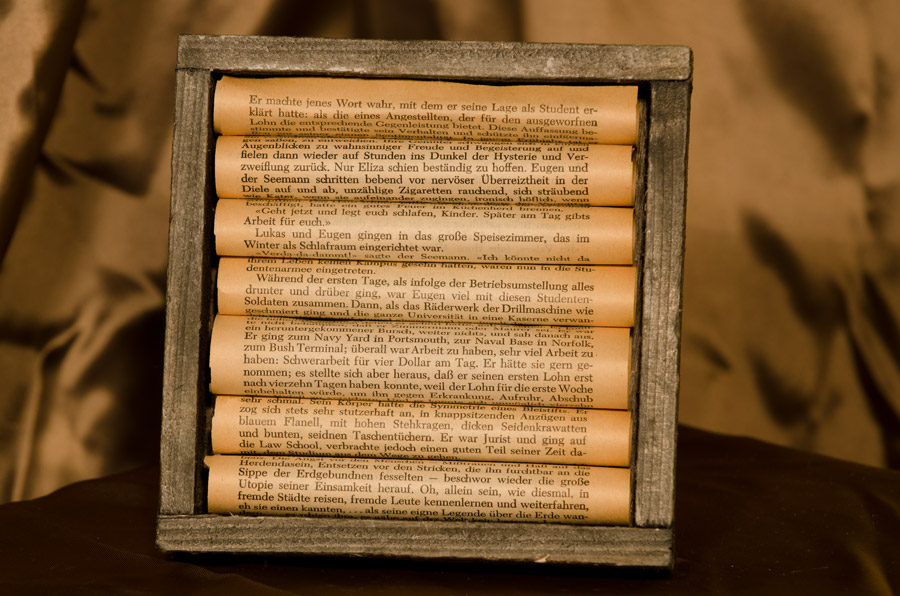 Er machte jenes Wort wahr, mit dem er seine Lage als Student er-
klärt hatte: als die eines Angestellten, der für den ausgeworfnen
Lohn die entsprechende Gegenleistung bietet. Diese Auffassung be-
stimmte und bestätigte sein Verhalten und schützte ihn
Augenblicken zu wahnsinniger Freude und Begeisterung auf und
fielen dann wieder auf Stunden ins Dunkel der Hysterie und Ver-
zweiflung zurück. Nur Eliza schien beständig zu hoffen. Eugen und
der Seemann schritten bebend vor nervöser Überreiztheit in der
Diele auf und ab, unzählige Zigaretten rauchend, sich sträubend
wie Kater, wenn sie aufeinander zugingen, ironisch höflich, wenn
«Geht jetzt und legt euch schlafen, Kinder. Später am Tag gibts
Arbeit für euch.»
Lukas und Eugen gingen in das große Speisezimmer, das im
Winter als Schlafraum eingerichtet war.
«Verda-da-damnt!» sagte der Seemann. «Ich könnte nicht da
ihrem Leben keinen Kampus gesehn hatten, waren nun in die Stu-
dentenarmee eingetreten.
Während der ersten Tage, als infolge der Betriebsumstellung alles
drunter und drüber ging, war Eugen viel mit diesen Studenten-
Soldaten zusammen. Dann, als das Räderwerk der Drillmaschine wie
geschmiert ging und die ganze Universität in eine Kaserne verwan-
ein heruntergekommener Bursch, weiter nichts, und sah auch aus.
Er ging zum Navy Yard in Portsmouth, zur Naval Base in Norfolk,
zum Bush Terminal; überall war Arbeit zu haben, sehr viel Arbeit zu
haben: Schwerarbeit für vier Dollar am Tag. Er hätte sie gern ge-
nommen; es stellte sich aber heraus, daß er seinen ersten Lohn erst
nach vierzehn Tagen haben konnte, weil der Lohn für die erste Woche
einbehalten würde, um ihn gegen Erkrankung, Aufruhr, Abschub
sehr schmal. Sein Körper hatte die Symmetrie eines Bleistifts. Er
zog sich stets sehr stutzerhaft an, in knappsitzenden Anzügen aus
blauem Flanell, mit hohen Stehkragen, dicken Seidenkrawatten
und bunten, seidnen Taschentüchern. Er war Jurist und ging auf
die Law School, verbrachte jedoch einen guten Teil seiner Zeit da-
mit, dem Studium aus dem Wege zu gehen.
Herdendasein, Entsetzen vor den Stricken, die ihn furchtbar an die
Sippe der Erdgebundnen fesselten – beschwor wieder die große
Utopie seiner Einsamkeit herauf. Oh, allein sein, wie diesmal, in
fremde Städte reisen, fremde Leute kennenlernen und weiterfahren,
eh sie einen kannten, . . . als seine eigne Legende über die Erde wan-